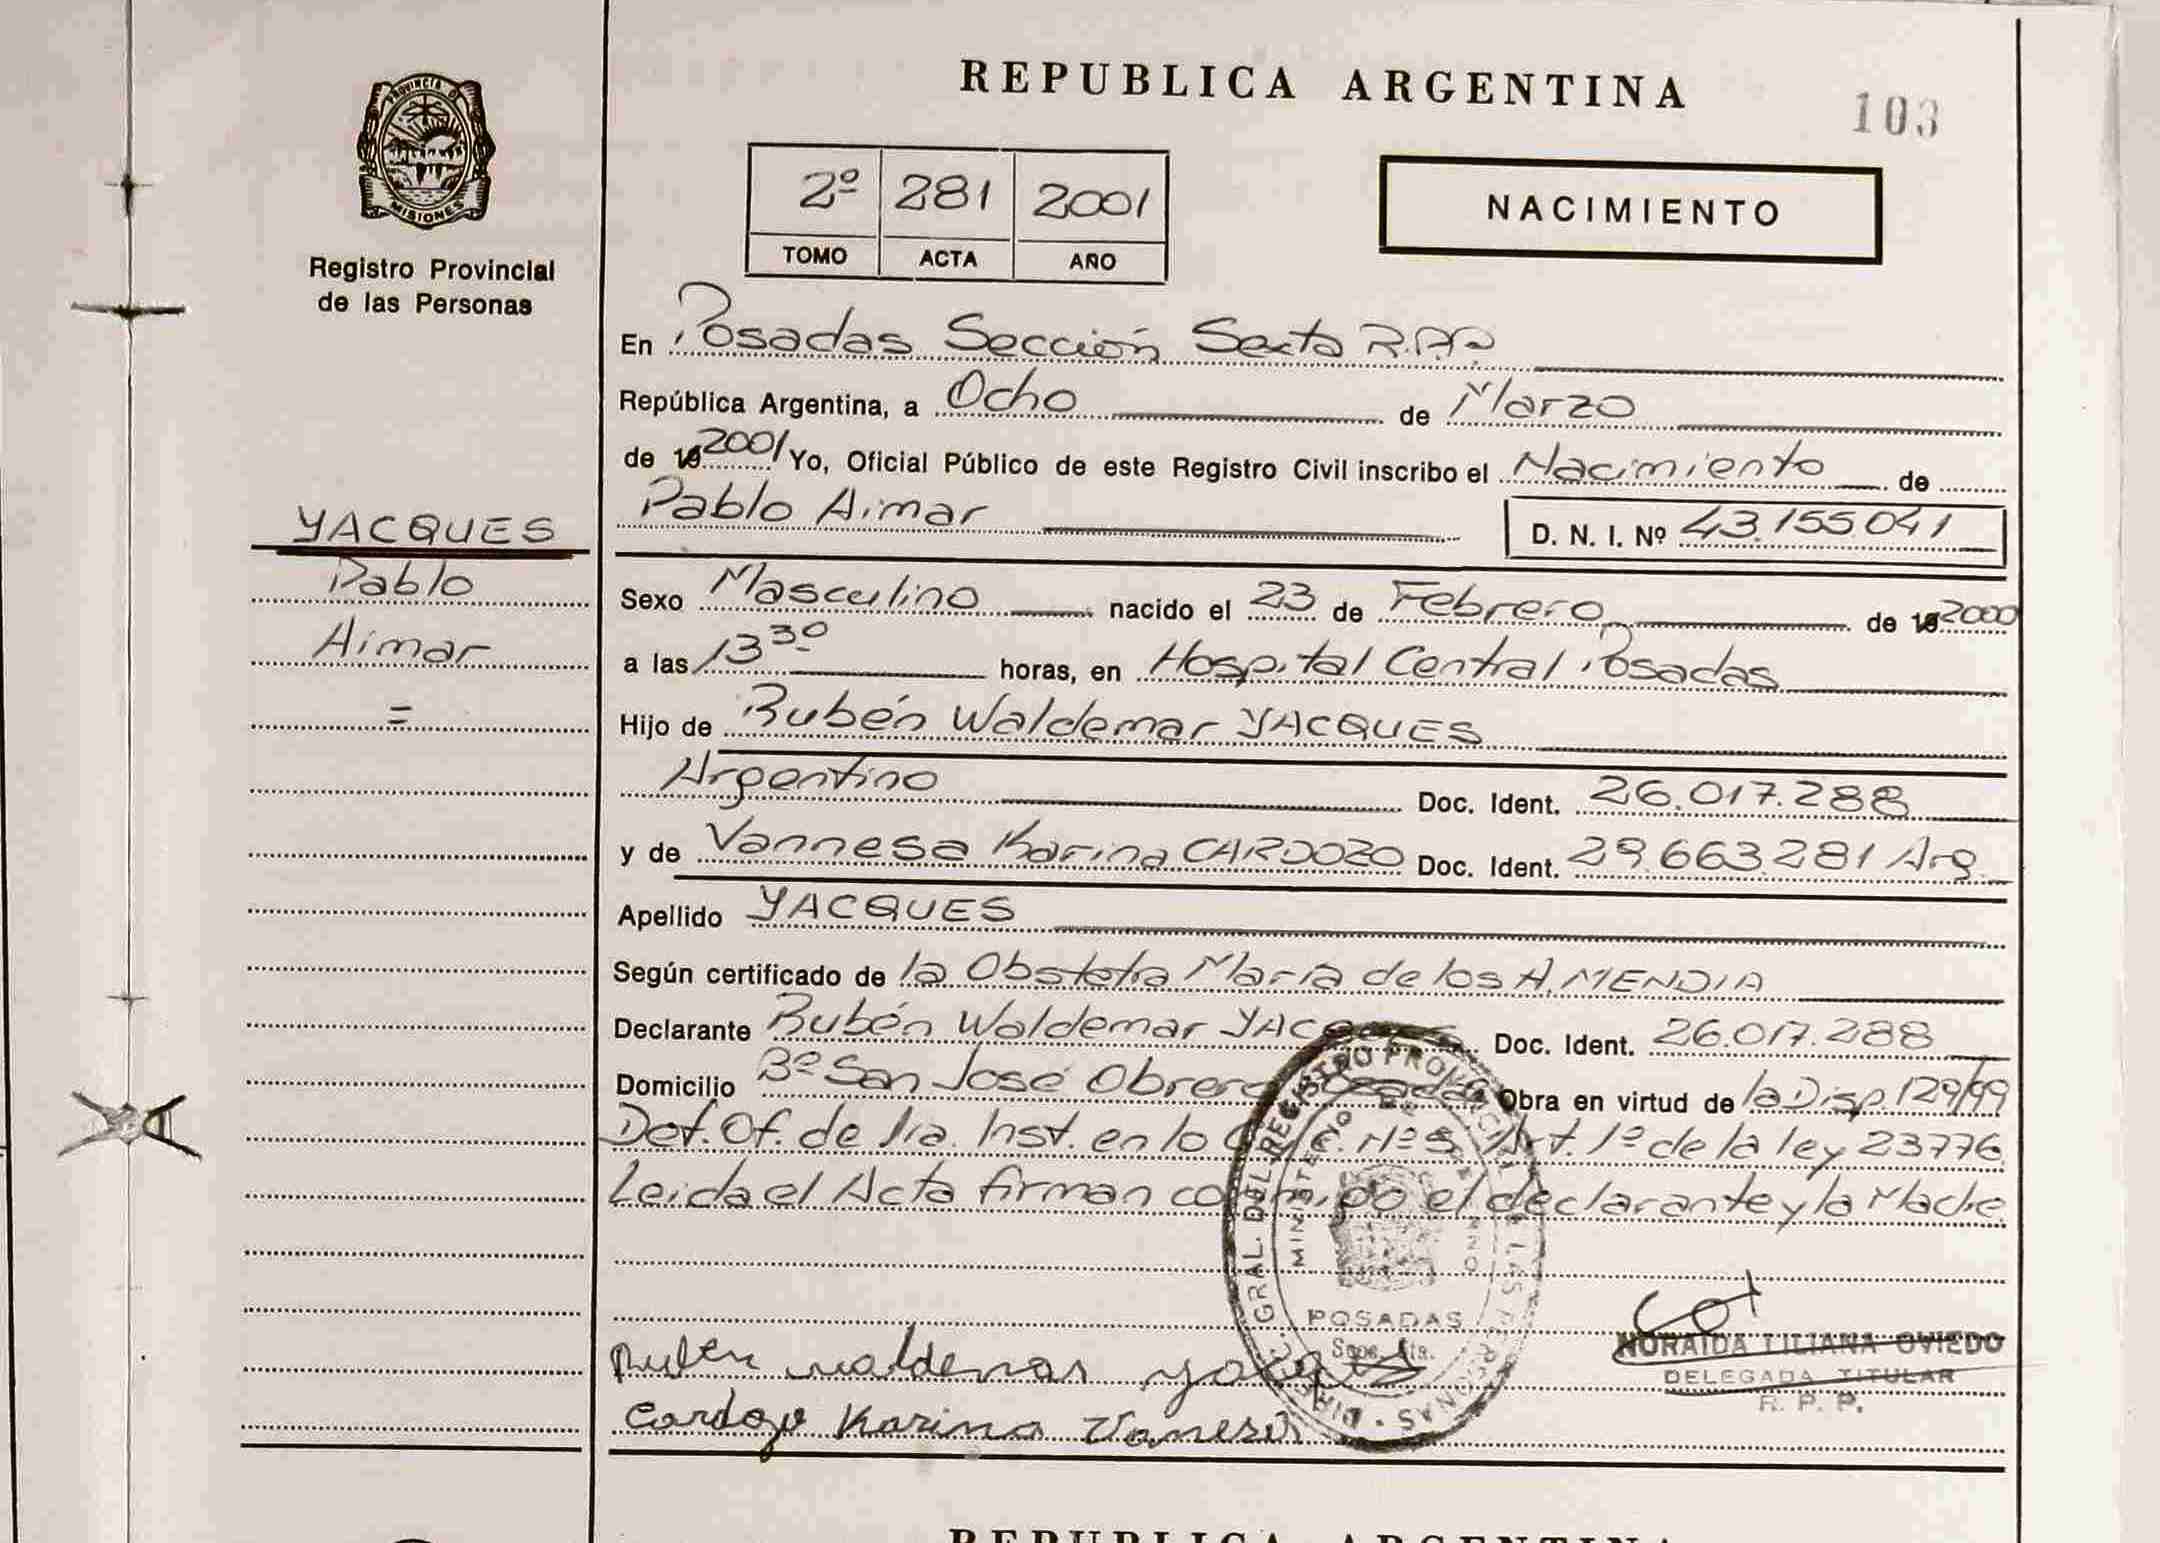 REPUBLICA ARGENTINA
103
PROVINCIA DE
MISIONES
Registro Provincial
de las Personas
2º 281 2001
TOMO ACTA AÑO
NACIMIENTO
En Posadas Sección Sexta R.P.P.
República Argentina, a Ocho de Marzo
de 19 2001 Yo, Oficial Público de este Registro Civil inscribo el Nacimiento de
Pablo Aimar D. N. I. Nº 43.155.041
YACQUES
Pablo
Aimar
=
Sexo Masculino nacido el 23 de Febrero de 19 2000
a las 13 30 horas, en Hospital Central Posadas
Hijo de Rubén Waldemar YACQUES
Argentino Doc. Ident. 26.017.288
y de Vannesa Karina CARDOZO Doc. Ident. 29.663.281 Arg.
Apellido YACQUES
Según certificado de la Obsteta María de los A. MENDIA
Declarante Rubén Waldemar YACQUES Doc. Ident. 26.017.288
Domicilio Bº San José Obrero Posadas Obra en virtud de la Disp. 129/99
Def. Of. de 1ra. Inst. en lo Nº 5 Art. 1º de la ley 23776
Leida el Acta firman conmigo el declarante y la Madre
DIR. GRAL. DEL REGISTRO PROVINCIAL DE LAS PERSONAS
MINISTERIO DE
POSADAS
Secc. 6ta.
Ruben Waldemar Yacques
Cardozo Karina Vanesa
NORAIDA LILIANA OVIEDO
DELEGADA TITULAR
R. P. P.
REPUBLICA ARGENTINA